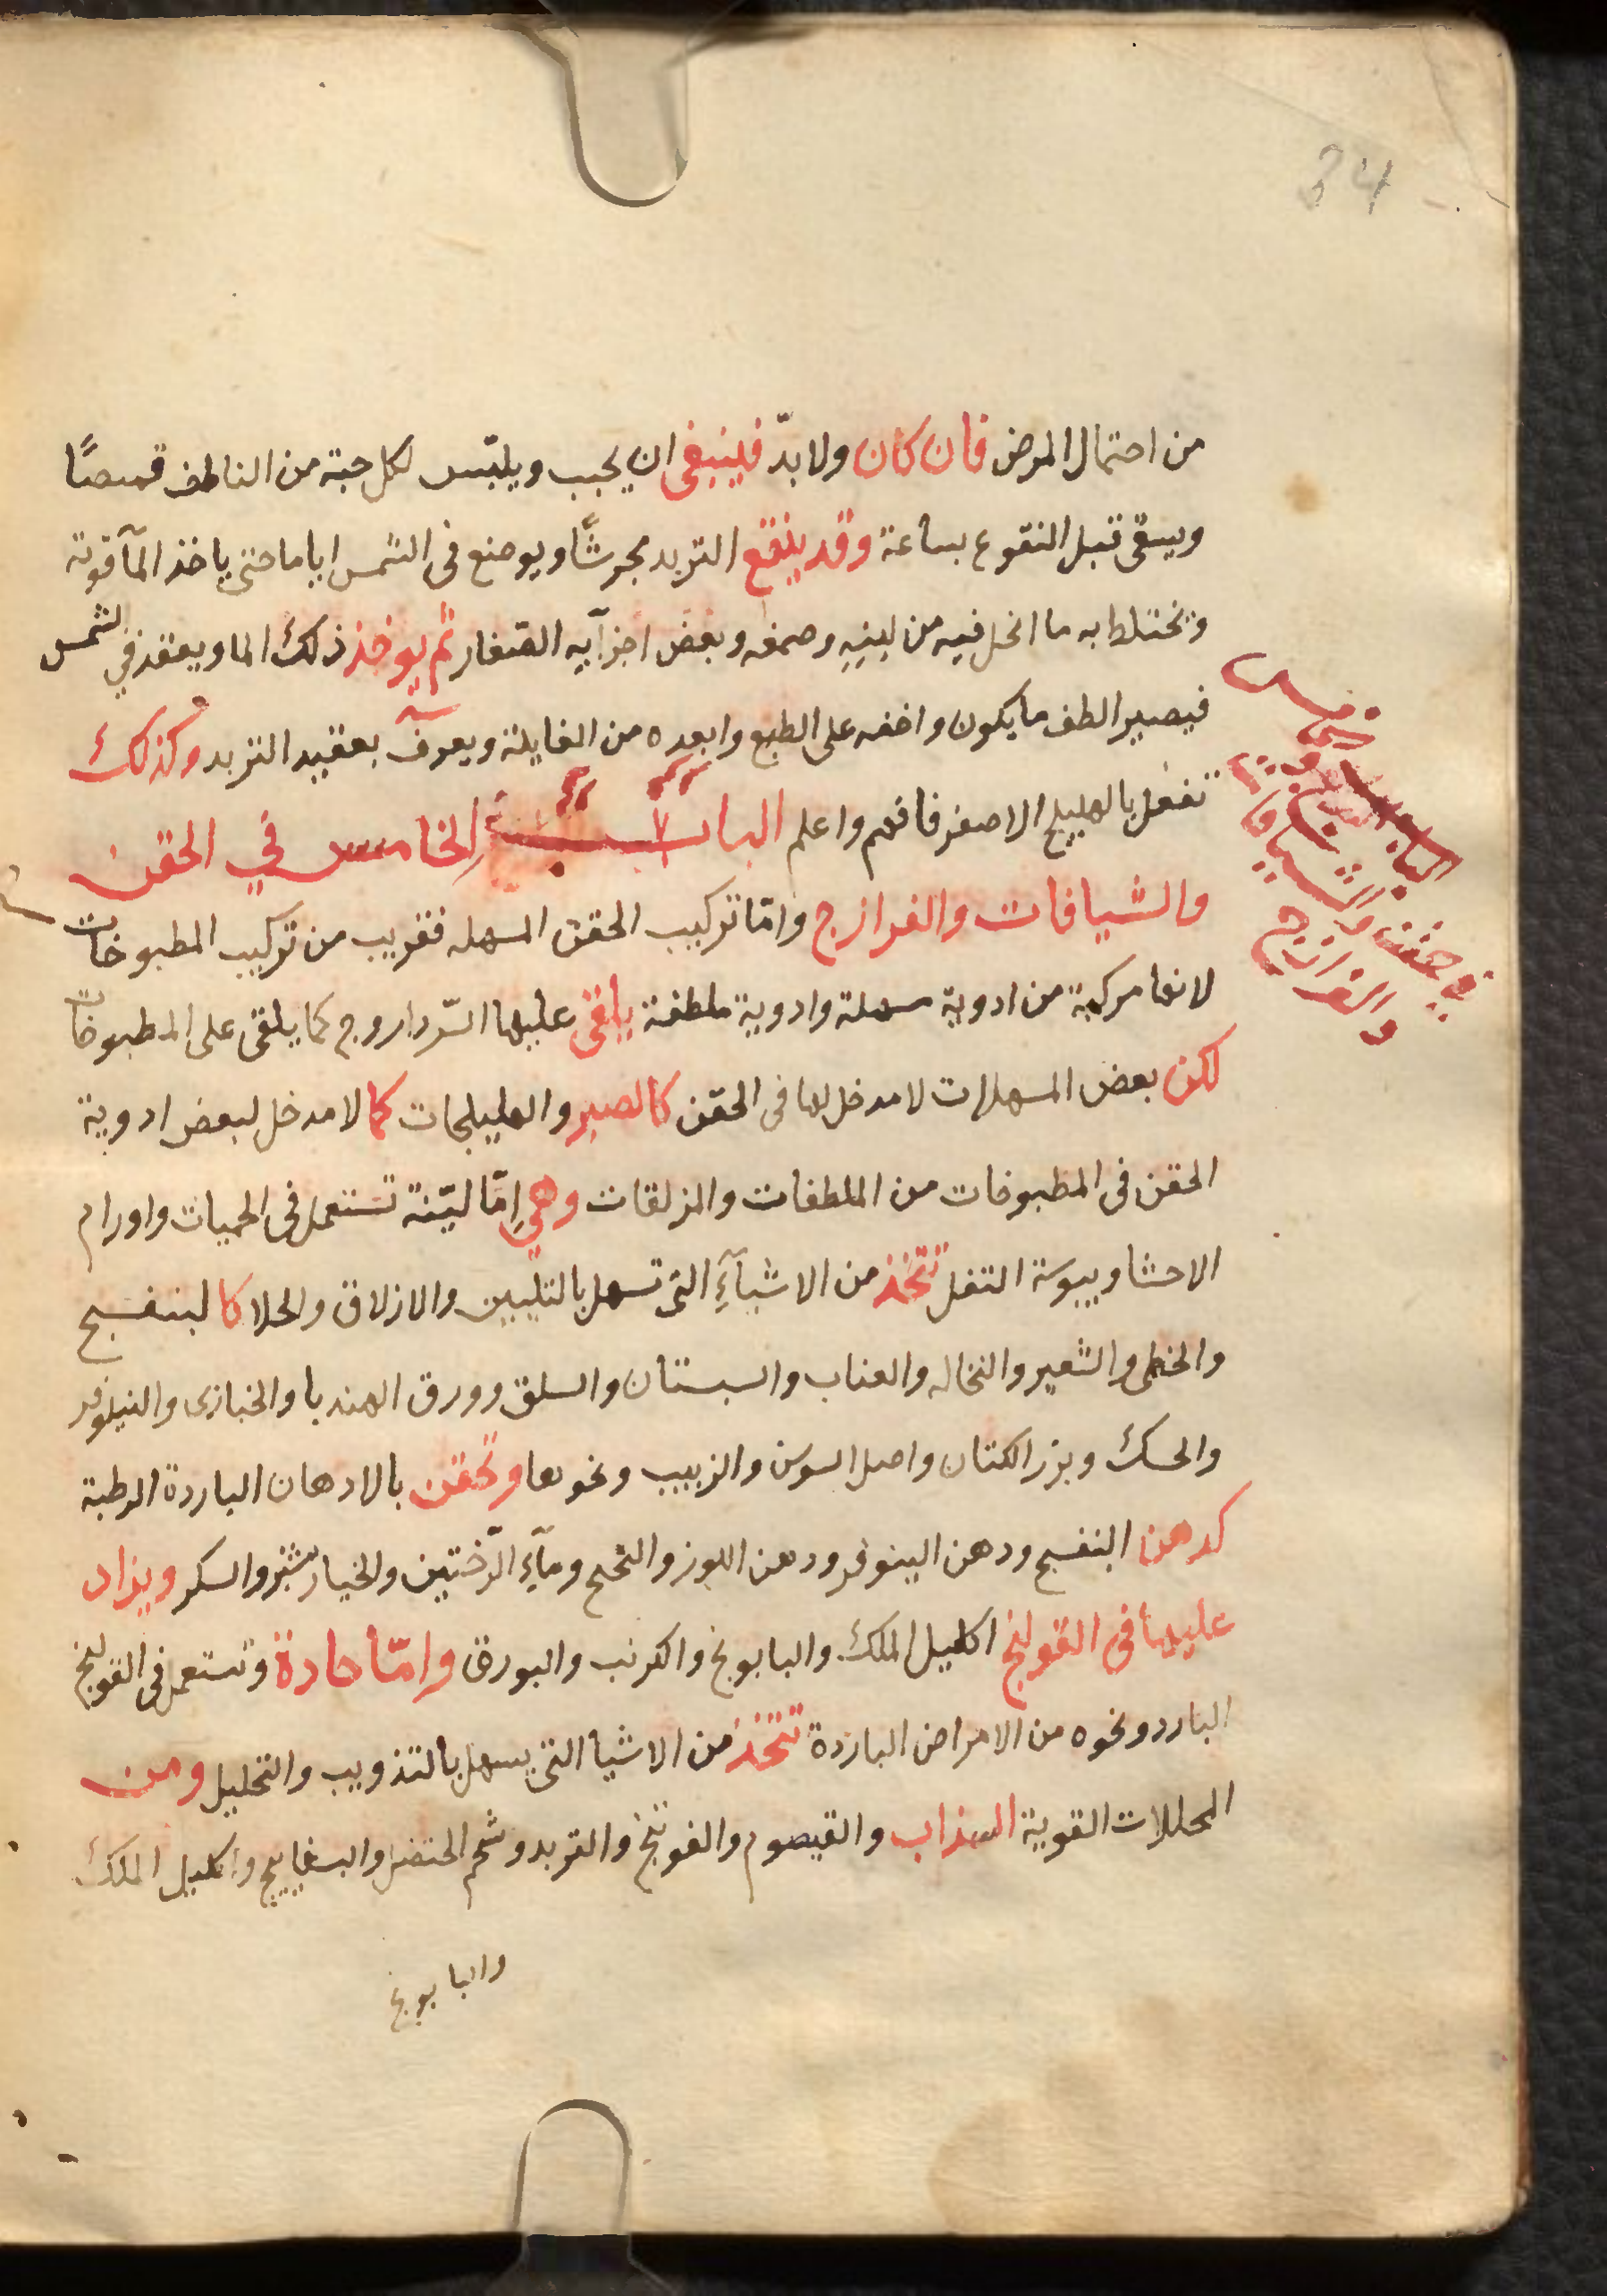 34
من احتمال المرض فان كان ولا بدّ فينبغى ان يحبب ويلبّس لكل حبة من الناطف قميصًا
ويسقى قبل النقوع بساعة وقد ينقع التربد مجرشًا ويوضع فى الشمس اياما حتى ياخذ المآ قوته
وتختلط به ما انحل فيه من لبنِهِ وصمغه وبعض اجزآيه الصغار ثم يوخذ ذلك الما ويعقد في الشمس
فيصير الطف ما يكون واخفه على الطبع وابعده من الغايلة ويعرف بعقيد التربد وكذلك
تفعل بالهليلج الاصفر فافهم واعلم الباب الخامس في الحقن
والشيافات والفرازج وامّا تركيب الحقن المسهله فقريب من تركيب المطبوخات
لانها مركبة من ادوية مسهلة وادوية ملطفة يلقى عليها السّرداروج كما يلقى على المطبوخات
لكن بعض المسهلات لا مدخل لها فى الحقن كالصبر والهليلجات كما لا مدخل لبعض ادوية
الحقن فى المطبوخات من الملطفات والمزلقات وهي اِمّا ليّنة تستعمل فى الحميات واورام
الاحشا ويبوسة التفل تتخذ من الاشيآءِ التى تسهل بالتليين والازلاق والجلا كالبنفسج
والخطمى والشعير والنخاله والعناب والسبستان والسلق وورق الهندبا والخبازى والنيلوفر
والحسك وبزر الكتان واصل السوسن والزبيب ونحوها وتحقن بالادهان الباردة الرطبة
كدهن البنفسج ودهن الينوفر ودهن اللوز والشحح ومآءِ الرّختين والخيار شنبر والسكر ويزاد
عليها فى القولنج اكليل الملك والبابونج والكرنب والبورق وامّا حادة وتستعمل فى القولنج
البارد ونحوه من الامراض الباردة تتخذ من الاشيا التى يسهل بالتذويب والتحليل ومن
المحللات القوية السذاب والقيصوم والفوتنج والتربد وشحم الحنضل والبسفايج واكليل الملك
والبابونج
الباب الخامس
في حقن والشيافات
والفرازج